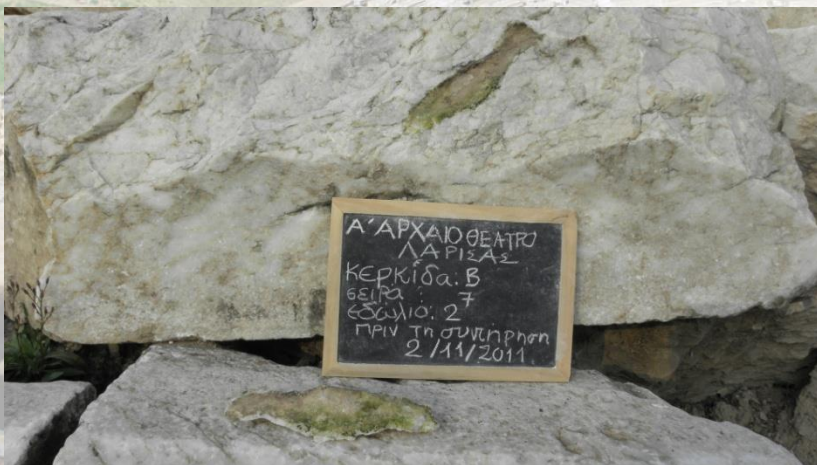 Α΄ ΑΡΧΑΙΟ ΘΕΑΤΡΟ
ΛΑΡΙΣΑΣ
ΚΕΡΚίδα: Β
σειρα : 7
εδώλιο: 2
πριν τη συντήρηση
2/11/2011